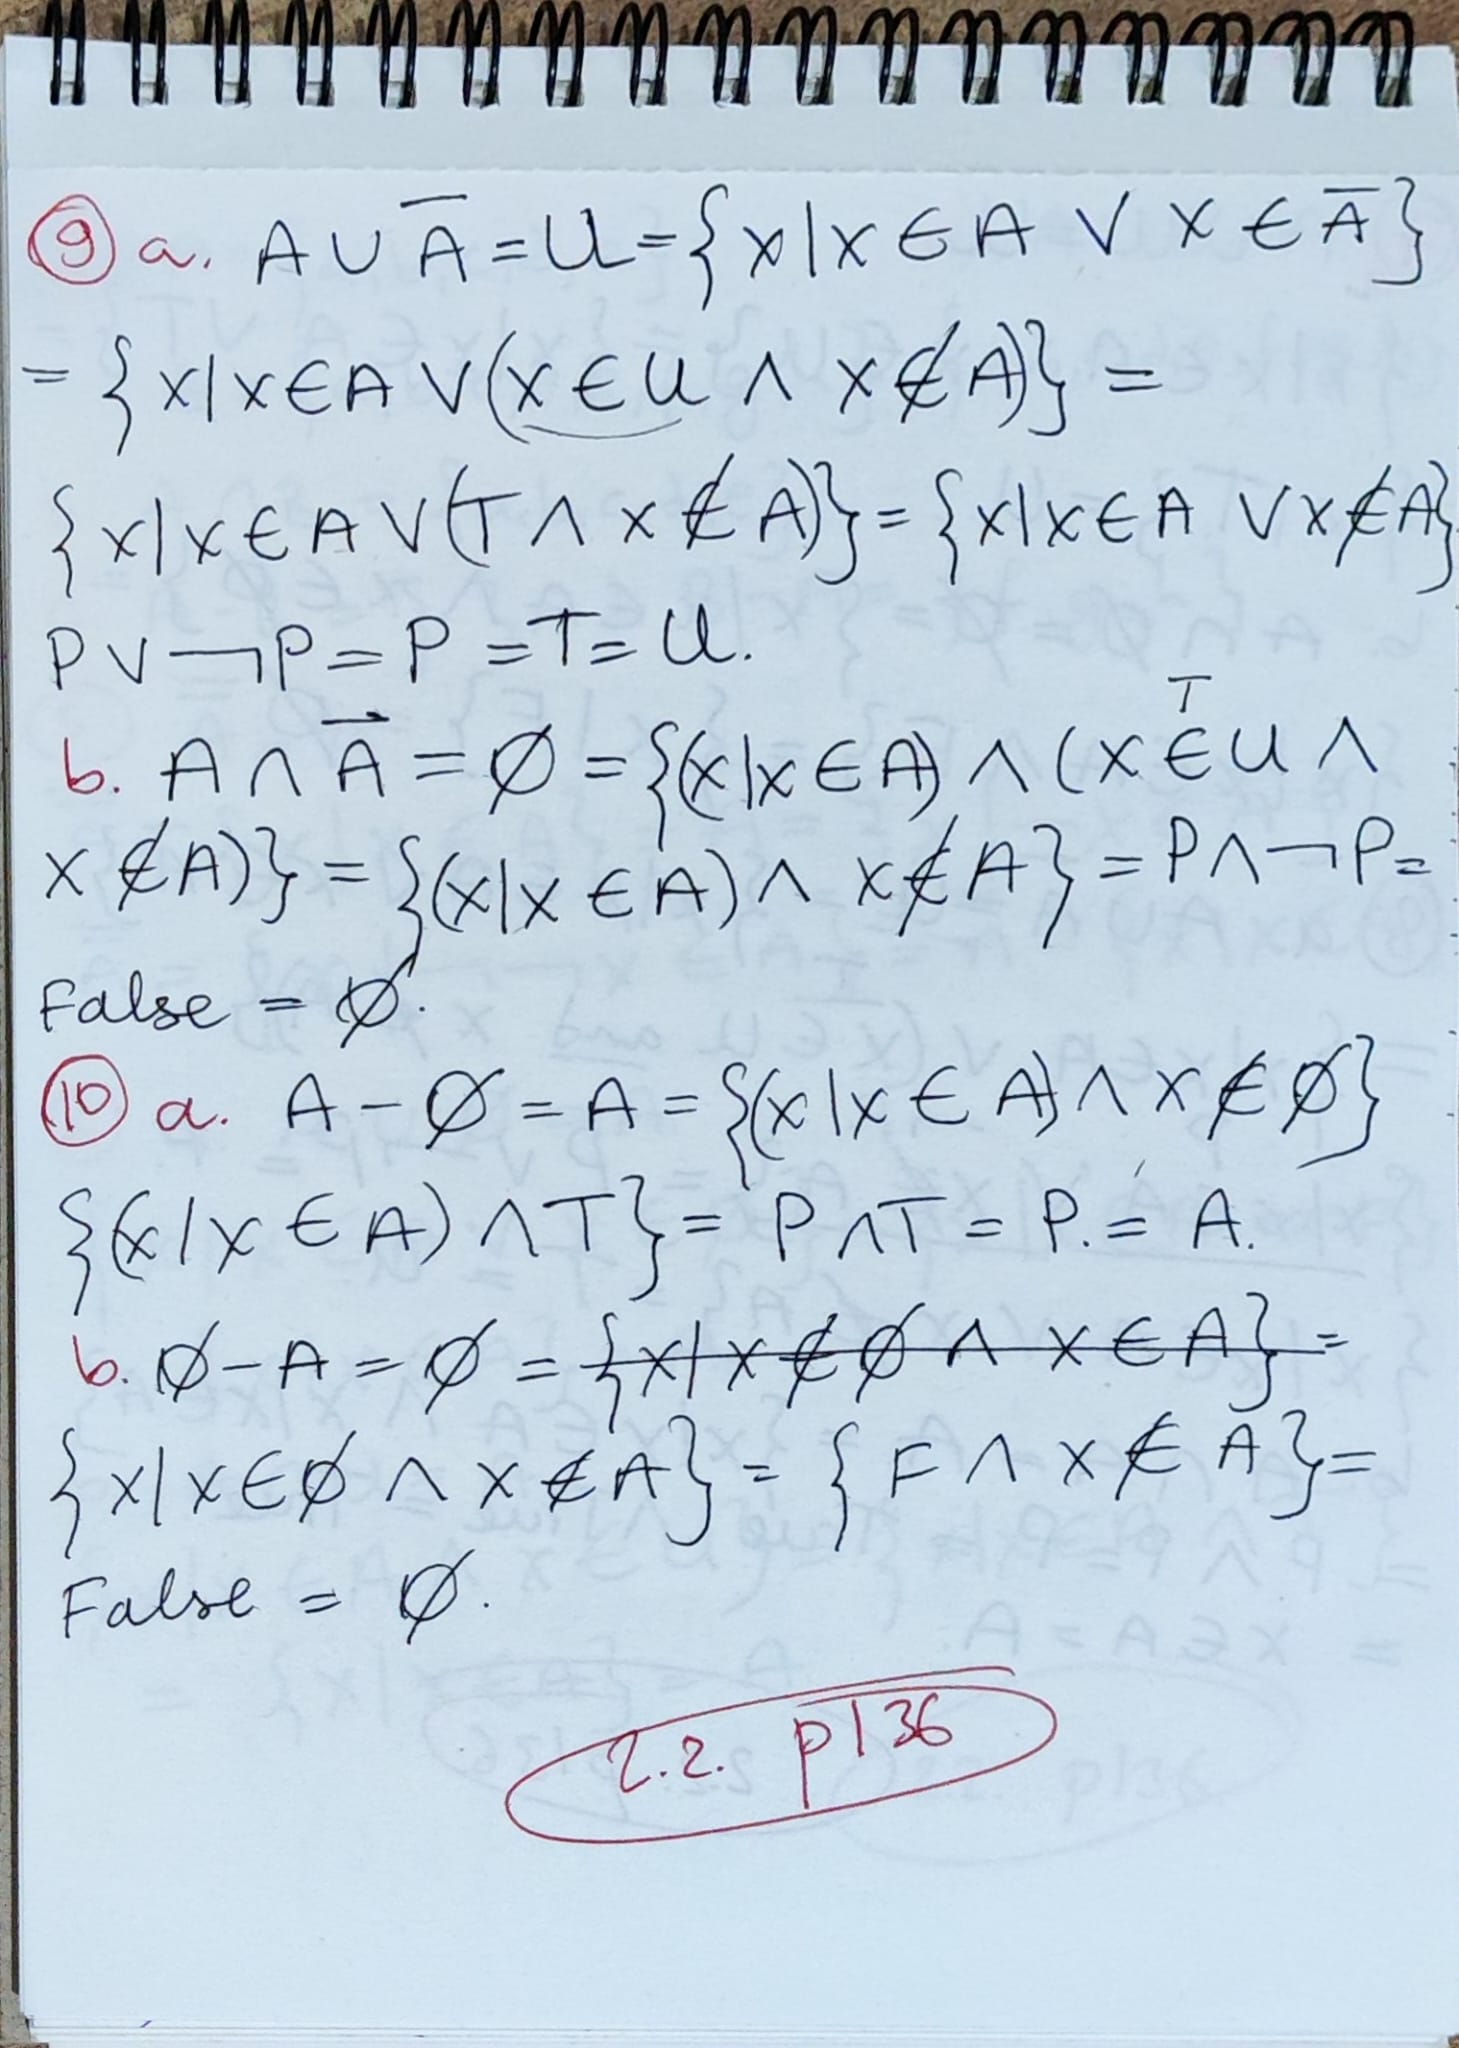 9 a. A ∪ A̅ = U = {x|x ∈ A ∨ x ∈ A̅}
= {x|x ∈ A ∨ (x ∈ U ∧ x ∉ A)} =
{x|x ∈ A ∨ (T ∧ x ∉ A)} = {x|x ∈ A ∨ x ∉ A}
P ∨ ¬P = P = T = U.
T
b. A ∩ A̅ = ∅ = {(x|x ∈ A) ∧ (x ∈ U ∧
x ∉ A)} = {(x|x ∈ A) ∧ x ∉ A} = P ∧ ¬P =
False = ∅.
10 a. A - ∅ = A = {(x|x ∈ A) ∧ x ∉ ∅}
{(x|x ∈ A) ∧ T} = P ∧ T = P. = A.
b. ∅ - A = ∅ = {x|x ∉ ∅ ∧ x ∈ A} =
{x|x ∈ ∅ ∧ x ∉ A} = {F ∧ x ∉ A} =
False = ∅.
2.2. p136